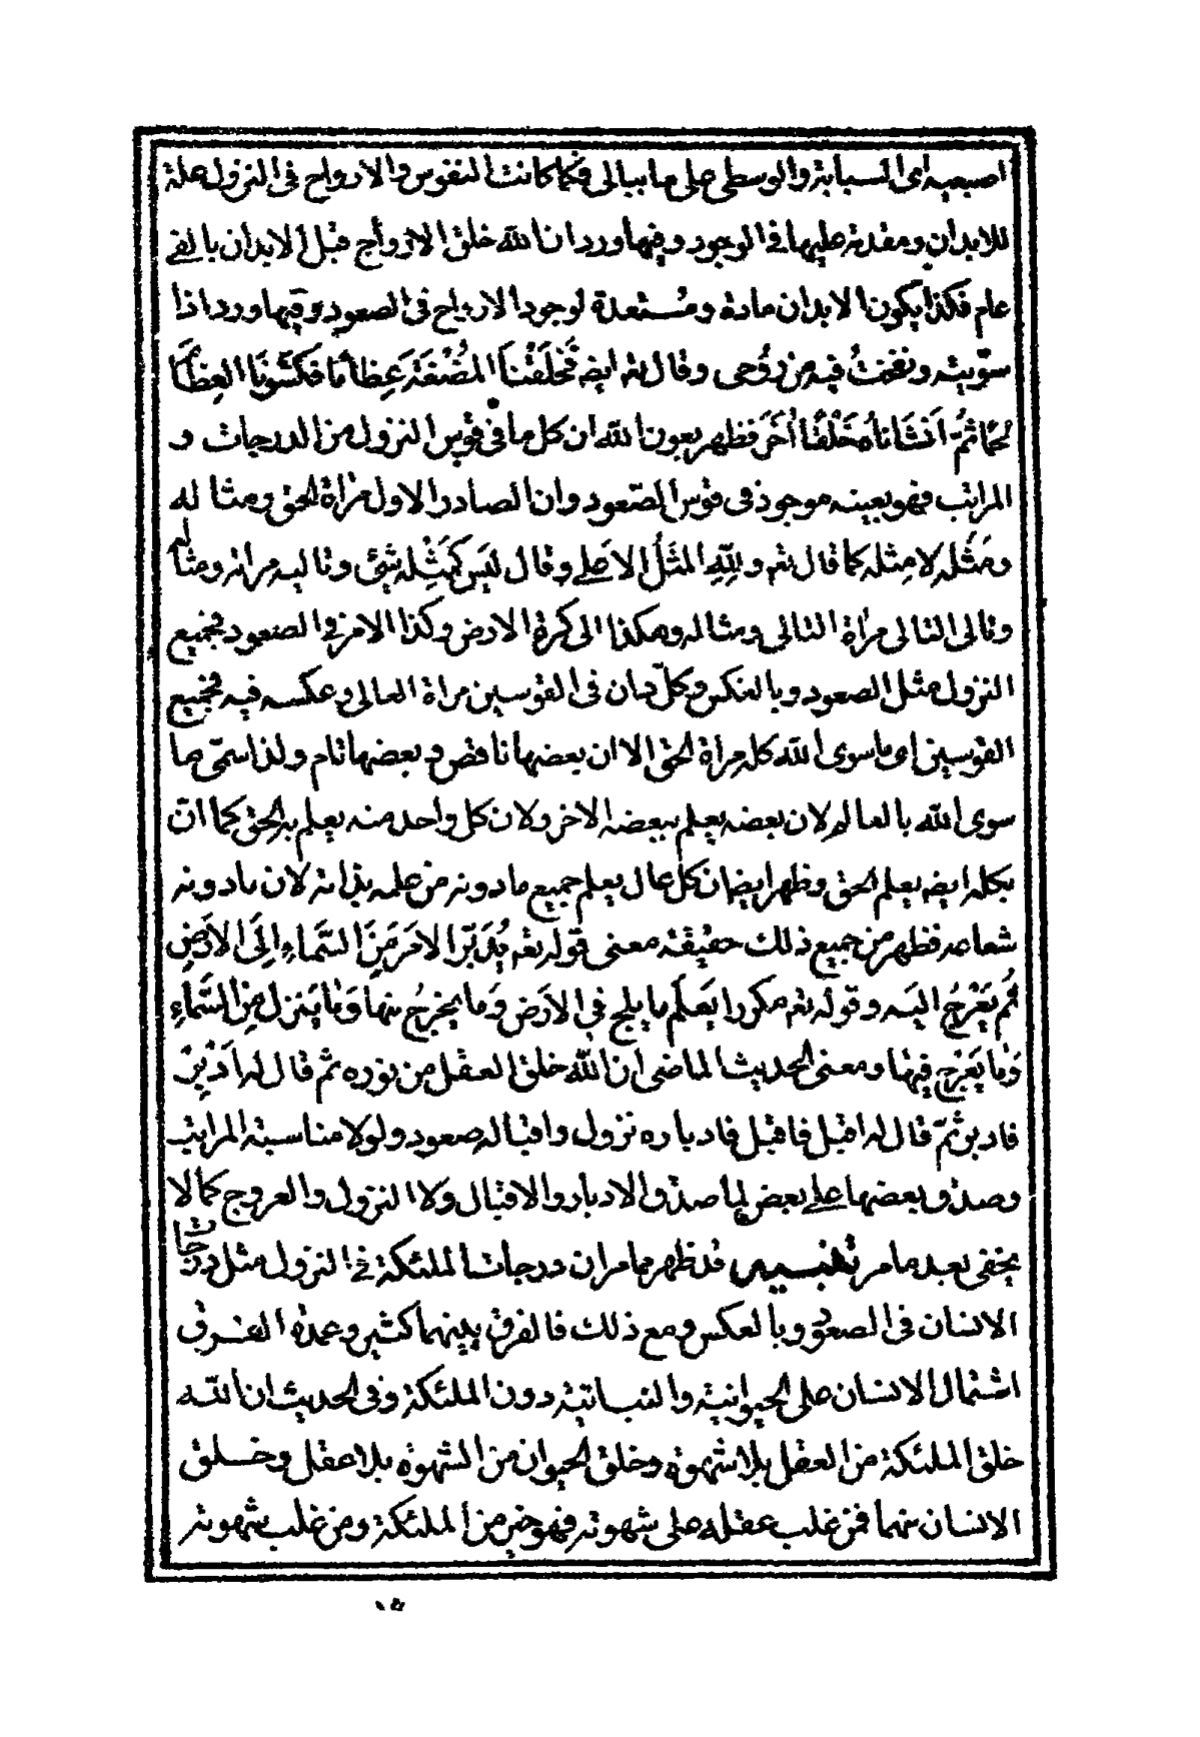 اصبعيه اى السبابة والوسطى على ما ببالى فكما كانت النفوس والارواح فى النزول علة
للابدان ومقدمة عليها فى الوجود وفيها ورد ان الله خلق الارواح قبل الابدان بالفى
عام فكذا يكون الابدان مادة ومُستعدة لوجود الارواح فى الصعود وفيها ورد اذا
سوّيته ونفختُ فيه من رُوحى وقال تع ايضه فَخَلَقْنَا المُضْغَةَ عِظاماً فَكَسَوْنَا العِظامَ
لحماً ثُمّ اَنشَاناهُ خَلْقًا اٰخَرَ فظهر بعون الله ان كل ما فى قوس النزول من الدرجات و
المراتب فهو بعينه موجود فى قوس الصّعود وان الصادر الاول مراة الحق ومثاله
ومَثَله لا مِثله كما قال تع وللهِ المَثَلُ الاعلى وقال لَيسَ كَمِثْلِه شئ وتاليه مراته ومثاله
وتالى التالى مراة التالى ومثاله وهكذا الى كرة الارض وكذا الامر فى الصعود فجميع
النزول مثل الصعود وبالعكس وكلّ دان فى القوسين مراة العالى وعكسه فيه فجميع
القوسين اى ما سوى الله كله مراة الحق الا ان بعضها ناقص وبعضها تام ولذا سمّى ما
سوى الله بالعالم لان بعضه يعلم ببعضه الاخر ولان كل واحد منه يعلم به الحق كما انّ
بكله ايضه يعلم الحق وظهر ايضا ان كل عال يعلم جميع ما دونه من علمه بذاته لان ما دونه
شعاعه فظهر من جميع ذلك حقيقة معنى قوله تع يُدَبّرُ الامرَ مِنَ السَّماءِ اِلَى الاَرَضِ
ثُم يَعْرُجُ اليَه وقوله تع مكررا يَعلَم ما يلج فى الاَرض وَما يخرجُ منها وَما يَنزل مِن السَّماءِ
وَما يَعْرُج فِيها ومعنى الحديث الماضى ان الله خلق العقل من نوره ثم قال له اَدْبِرْ
فادبر ثمّ قال له اقبل فاقبل فادباره نزول واقباله صعود ولولا مناسبة المراتب
وصدق بعضها على بعض لما صدق الادبار والاقبال ولا النزول والعروج كما لا
يخفى بعد ما مر تفسير قد ظهر مما مر ان درجات الملئكة فى النزول مثل درجات
الانسان فى الصعود وبالعكس ومع ذلك فالفرق بينهما كثير وعمدة الفرق
اشتمال الانسان على الحيوانية والنباتية دون الملئكة وفى الحديث ان الله
خلق الملئكة من العقل بلا شهوة وخلق الحيوان من الشهوة بلا عقل وخلق
الانسان منهما فمن غلب عقله على شهوته فهو خير من الملئكة ومن غلب شهوته